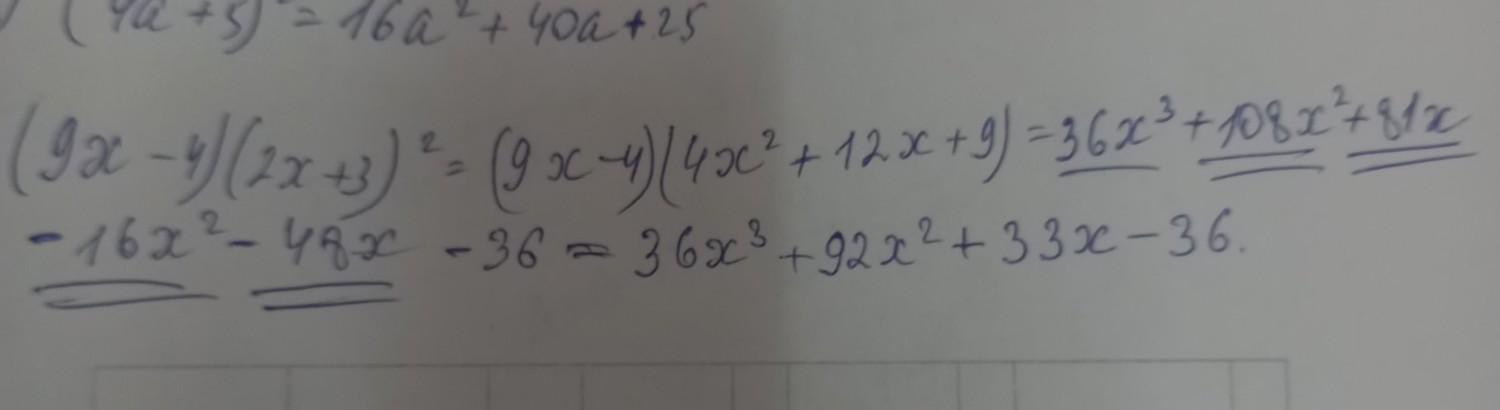 (4a+5)²=16a²+40a+25
(9x-4)(2x+3)²=(9x-4)(4x²+12x+9)=36x³+108x²+81x
-16x²-48x-36=36x³+92x²+33x-36.